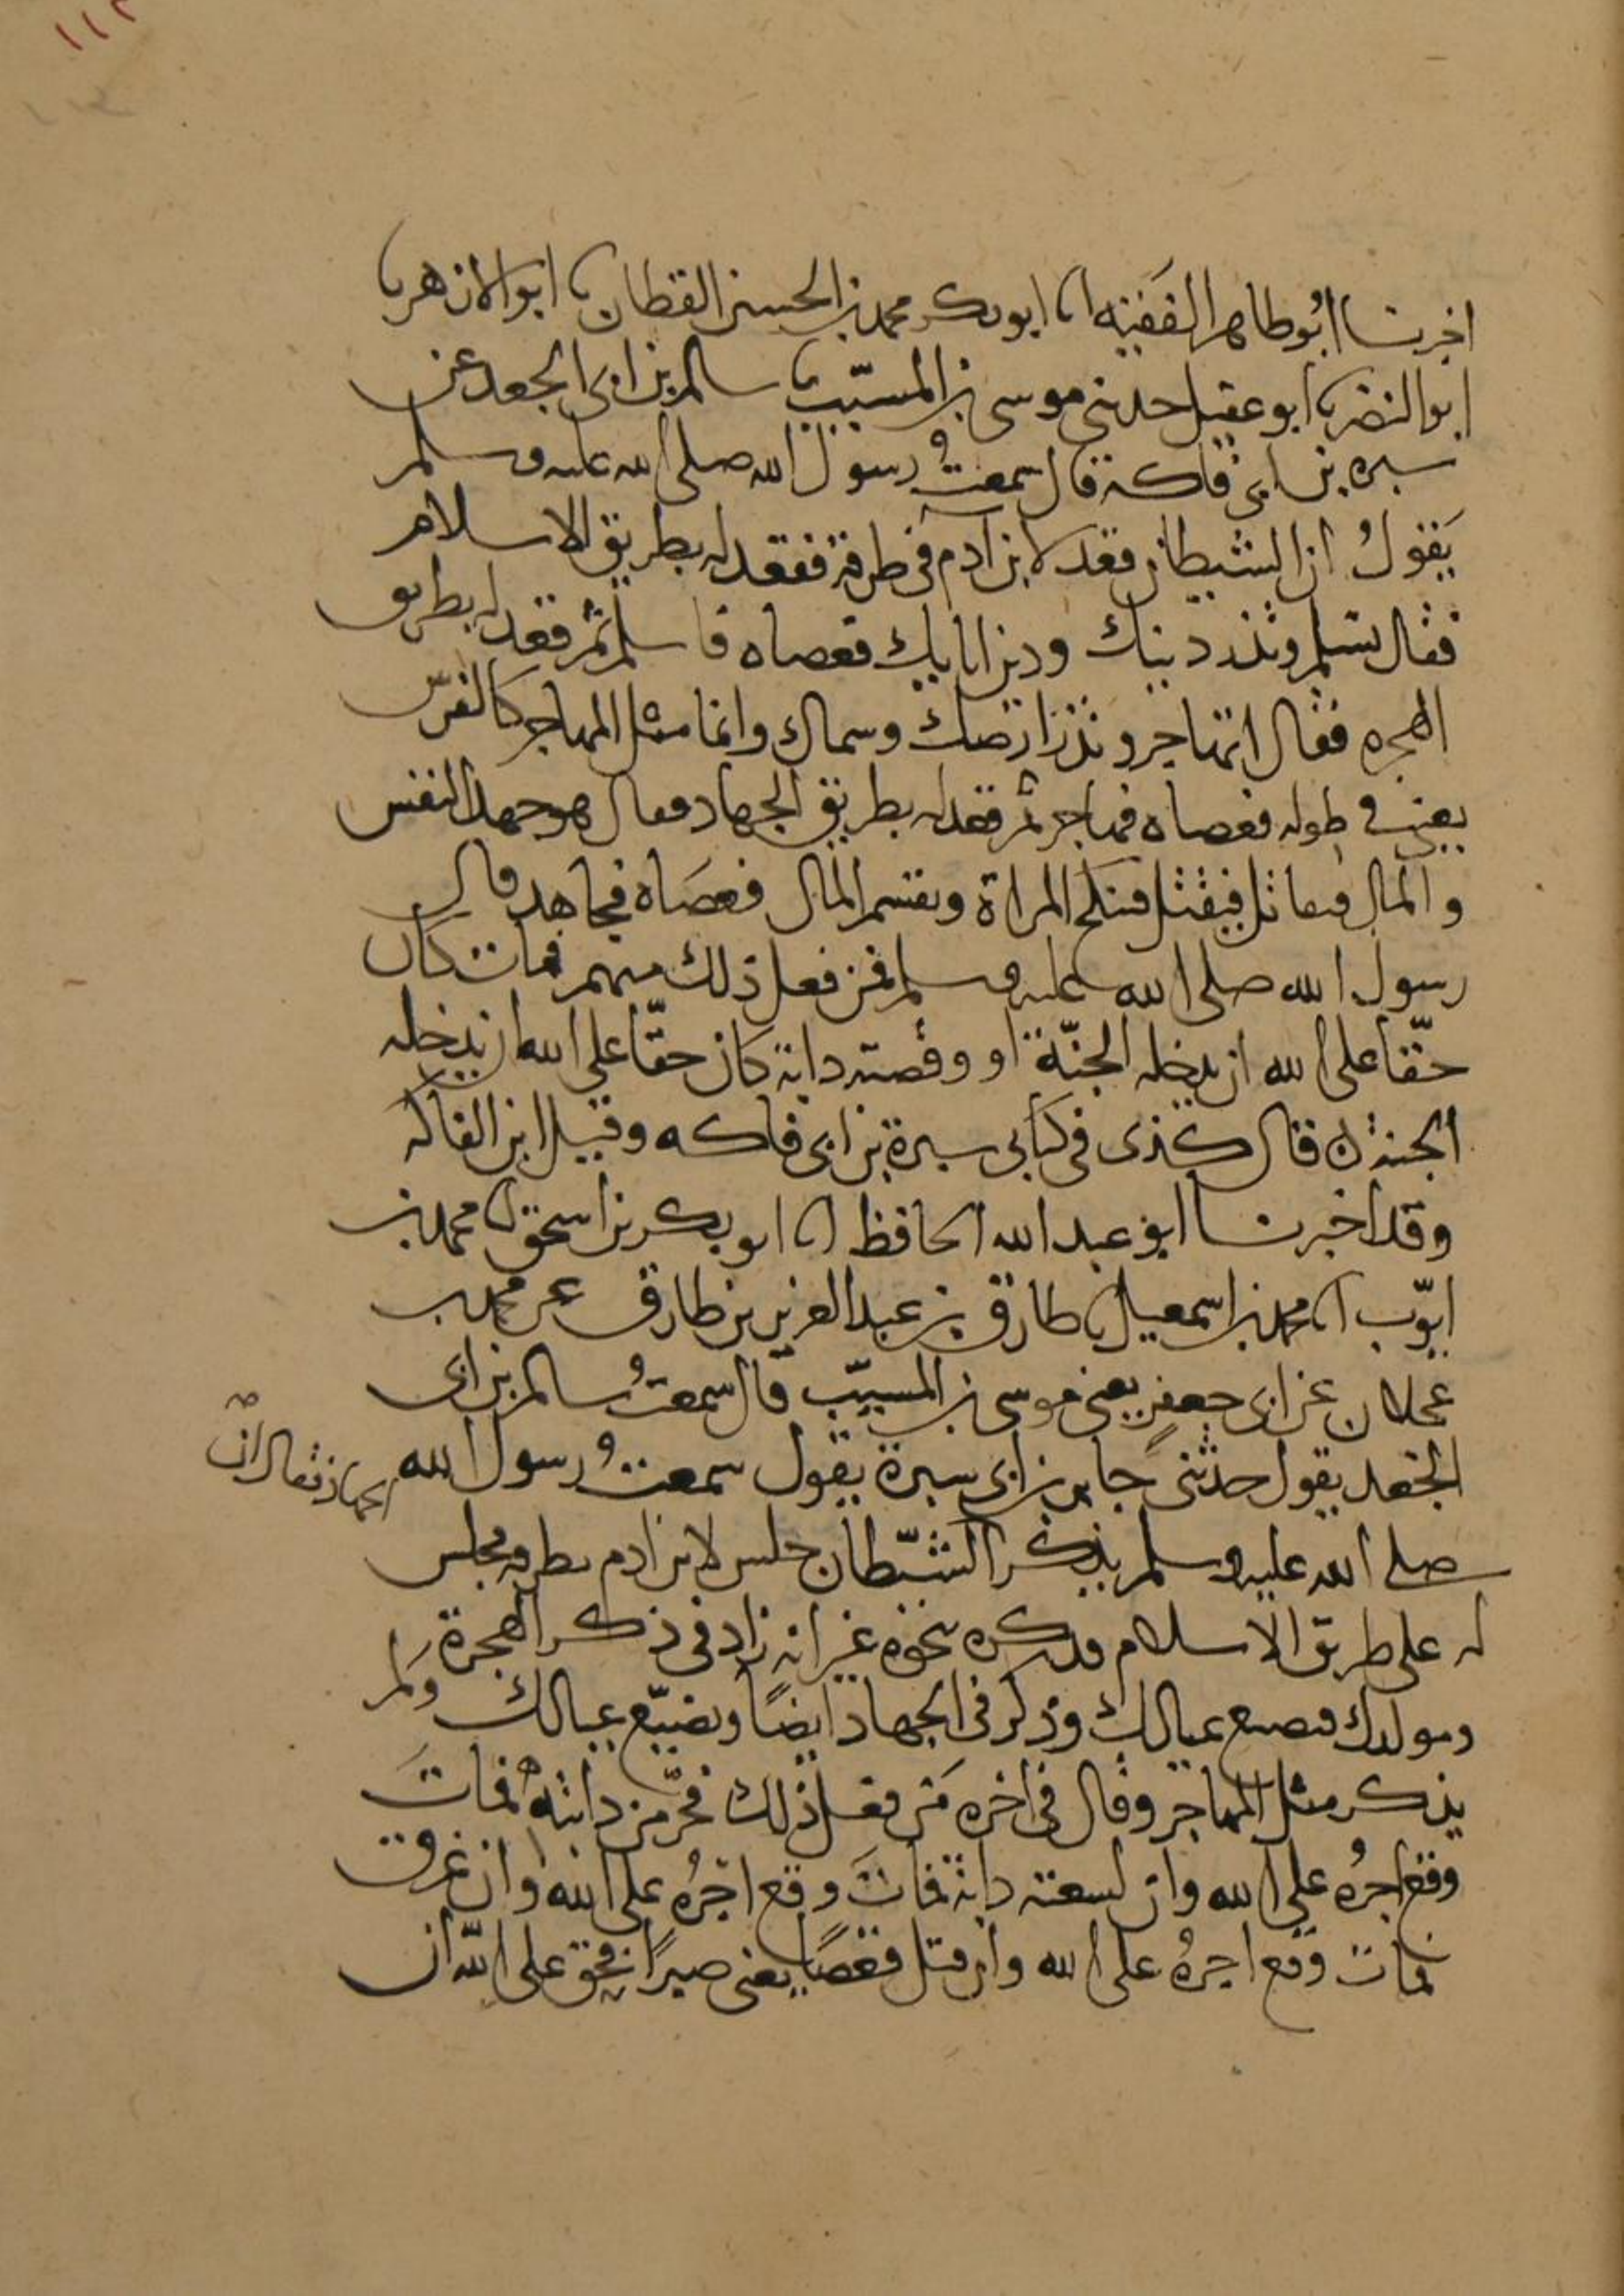 ١١٢
اخبرنا ابُو طاهر الفَقيه انا ابو بكر محمد بن الحسين القطان نا ابو الازهر نا
ابو النضر نا ابو عقيل حدثني موسى بن المسيّب نا سالم بن ابى الجعد عن
سبره بن ابى فاكه قال سمعتُ رسول الله صلى الله عليه وسلم
يَقولُ ان الشيطان قعد لابن ادم فى طرقة فقعد له بطريق الاسلام
فقال تسلم وتذر دينك ودين ابايك فعصاه فاسلم ثم قعد له بطريق
الهجره فقال اتهاجر وتذر ارضك وسماك وانما مثل المهاجر كالفرس
يعنى في طوله فعصاه فهاجر ثم قعد له بطريق الجهاد فقال هو جهد النفس
والمال فتقاتل فتقتل فتنكح المراة ويقسم المال فعصَاه فجاهد قال
رسول الله صلى الله عليه وسلم فمن فعل ذلك منهم فمات كان
حقّا على الله ان يدخله الجنّة او وقصته دابة كان حقّا على الله ان يدخله
الجنة ن قال كذى فى كتابى سبرة بن ابى فاكه وقيل ابن الفاكه
وقد اخبرنا ابو عبد الله الحافظ انا ابو بكر بن اسحق انا محمد بن
ايوّب انا محمد بن اسمعيل نا طارق بن عبد العزيز بن طارق عن محمد بن
عجلان عن ابى جعفرٍ يعنى موسى بن المسيّب قال سمعتُ سالم بن ابى
الجعد يقول حدثنى جابر بن ابى سبرة يقول سمعتُ رسول الله
صلى الله عليه وسلم يذكر الشيّطان جلس لابن ادم بطرقه فجلس
له على طريق الاسلام فذكره بنحوه غير انه زاد فى ذكر الهجرة
ومولدك فتضيع عيالك وذكر فى الجهاد ايضًا وتضيّع عيالك ولم
يذكر مثل المهاجر وقال فى اخره مَن فعل ذلك فخرّ من دابتهِ فماتَ
وقع اجرُه على الله وان لسعته دابة فماتَ وقع اجرُه على الله وان غرق
فمات وقع اجرُه على الله وان قتل قعصًا يعنى صبرًا فحق على الله ان